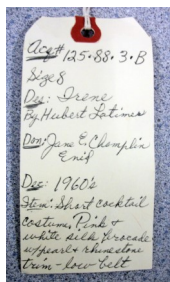 Acc# 125.88.3.B
Size 8
Des: Irene
By Hubert Latimer
Don: Jane E. Champlin
Enid
Dec: 1960's
Item: Short cocktail
costume, Pink &
white silk brocade
w/pearl & rhinestone
trim - low belt